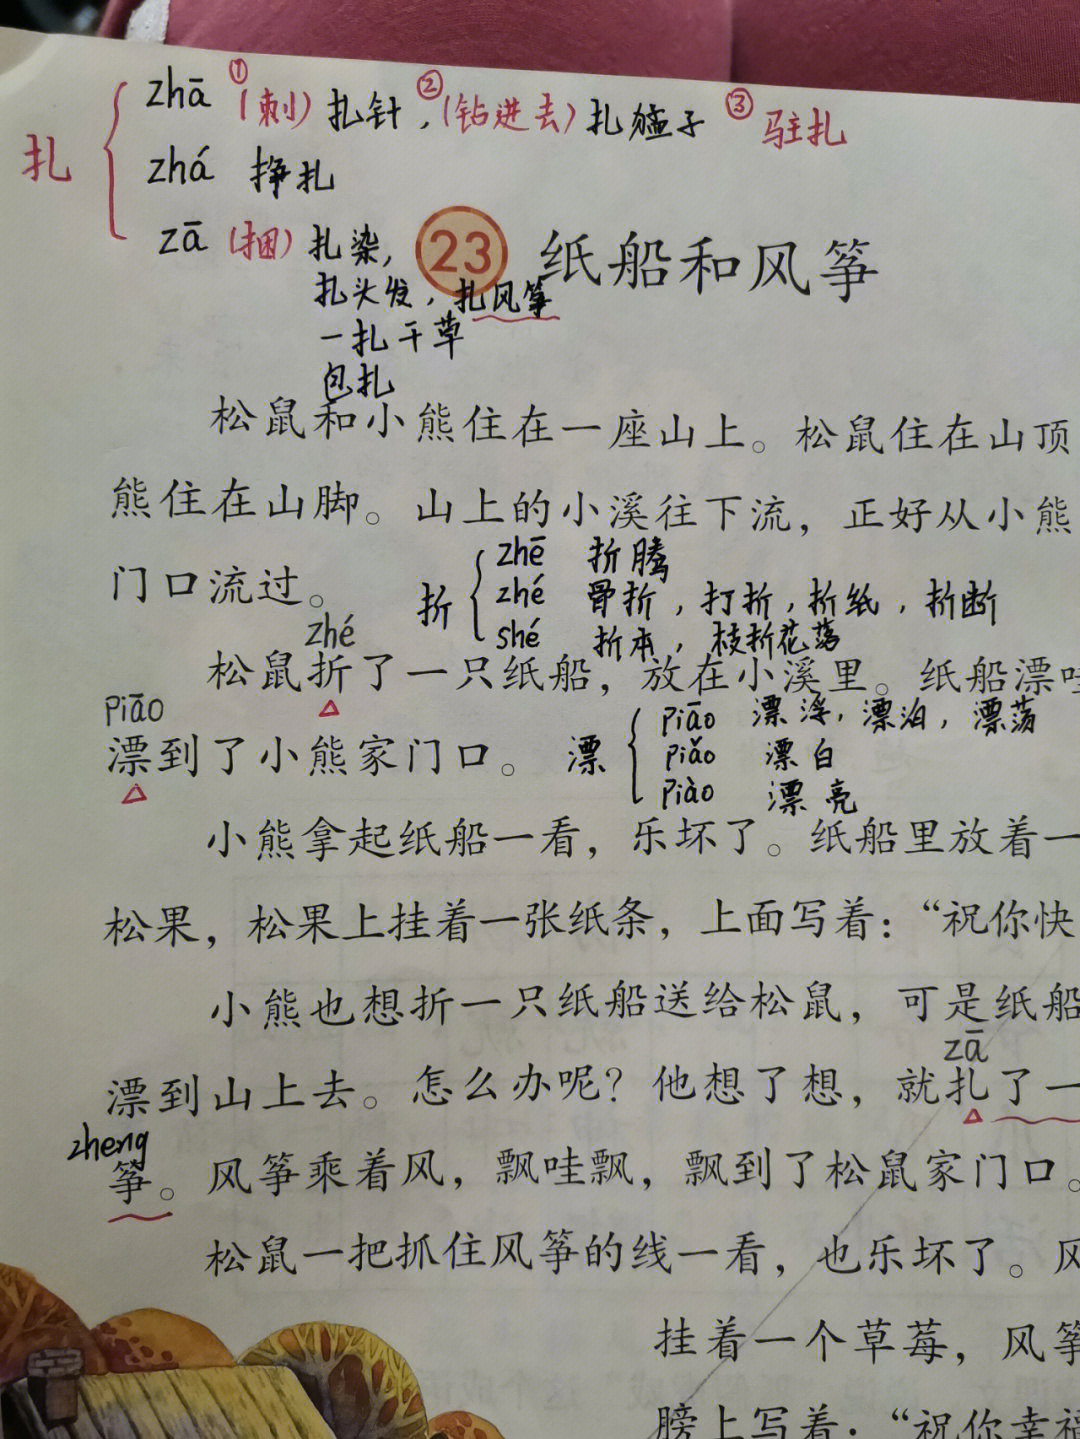 扎
zhā ①(刺)扎针,②(钻进去)扎猛子 ③驻扎
zhá 挣扎
zā(捆)扎染,
扎头发,扎风筝
一扎干草
包扎
23 纸船和风筝
松鼠和小熊住在一座山上。松鼠住在山顶
熊住在山脚。山上的小溪往下流,正好从小熊
门口流过。
折
zhē 折腾
zhé 骨折,打折,折纸,折断
shé 折本,枝折花落
zhé
松鼠折了一只纸船,放在小溪里。纸船漂哇
piāo
漂到了小熊家门口。
漂
piāo 漂浮,漂泊,漂荡
piǎo 漂白
piào 漂亮
小熊拿起纸船一看,乐坏了。纸船里放着一
松果,松果上挂着一张纸条,上面写着:“祝你快
小熊也想折一只纸船送给松鼠,可是纸船
zā
漂到山上去。怎么办呢?他想了想,就扎了一
zheng
筝。风筝乘着风,飘哇飘,飘到了松鼠家门口。
松鼠一把抓住风筝的线一看,也乐坏了。风
挂着一个草莓,风筝
膀上写着:“祝你幸福